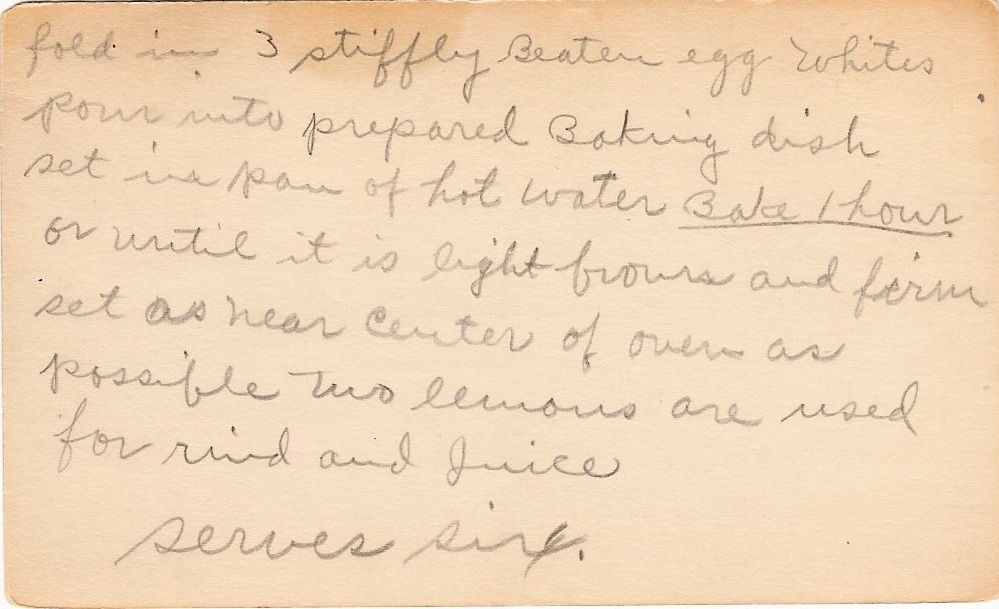 fold in 3 stiffly Beaten egg Whites
pour into prepared Baking dish
set in pan of hot water Bake 1 hour
or until it is light brown and firm
set as near Center of oven as
possible Two lemons are used
for rind and Juice
serves six.